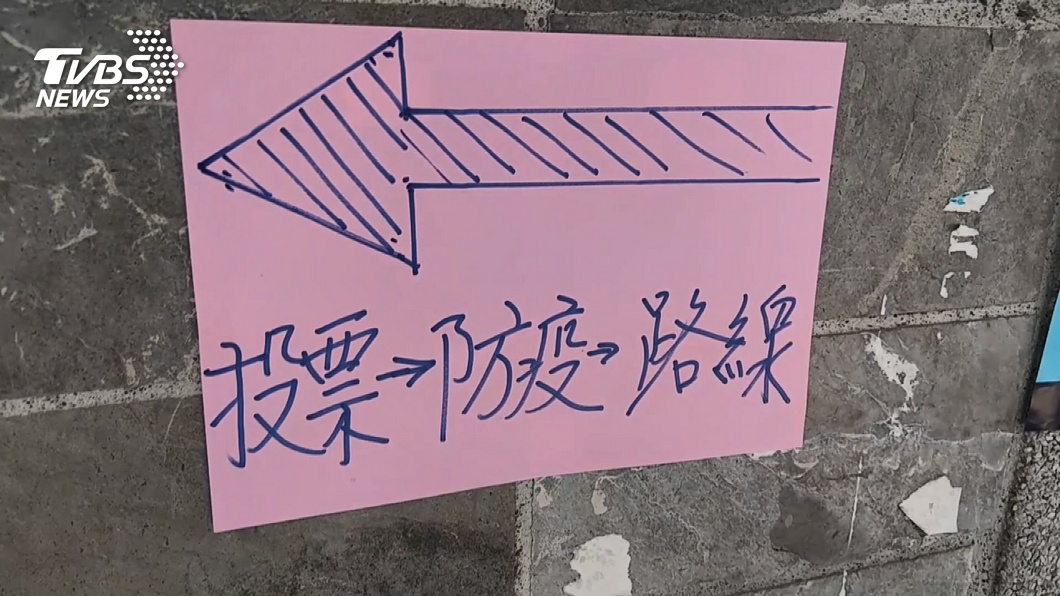 TVBS
NEWS
投票→防疫→路線